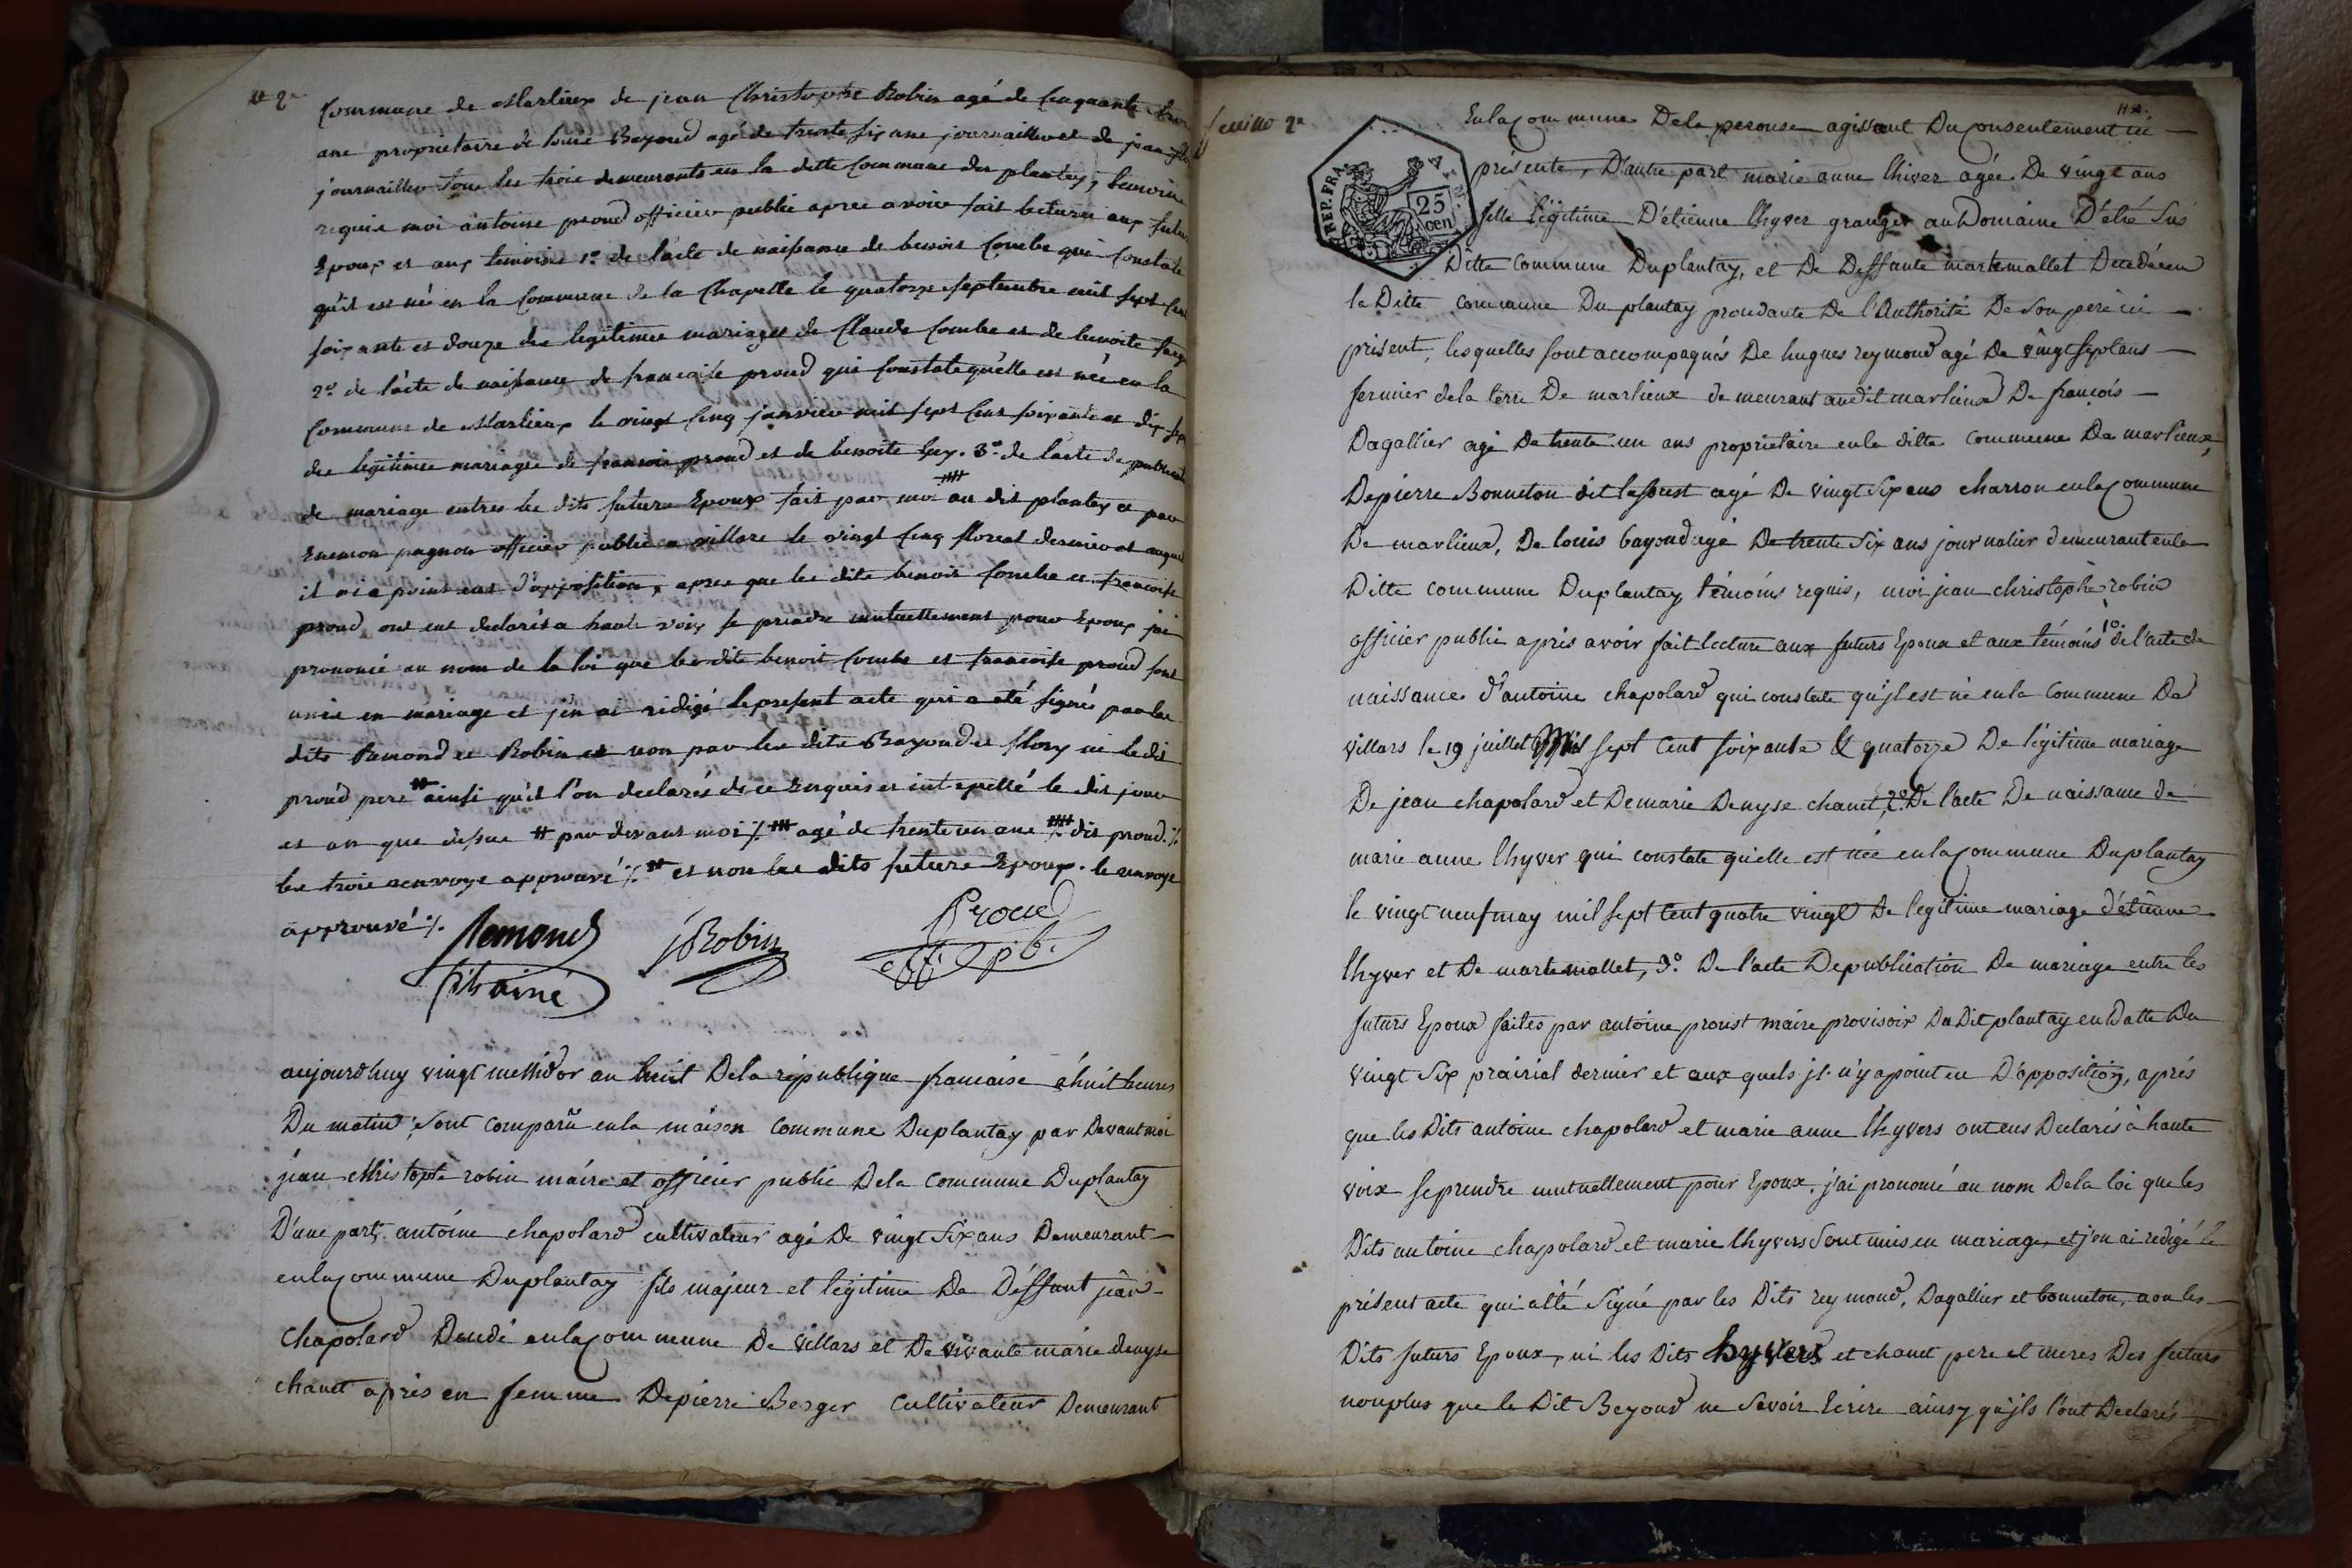 commune de Marlieux de jean Christophe Robin agé de cinquante trois
ans proprietaire de louis Bayond agé de trente six ans journaillier et de jean
journaillier tous les trois demeurants en la ditte commune du plantay, temoins
requis moi antoine proud officier public apres avoir fait lecture aux futurs
Epoux et aux temoins 1º. de l'acte de naissance de benoit Combe qui constate
qu'il est né en la Commune de la Chapelle le quatorze septembre mil sept cent
soixante et douze du legitime mariage de Claude Combe et de benoite
2º. de l'acte de naissance de francoise proud qui constate quélle est née en la
commune de Marlieux le vingt cinq janvier mil sept cent soixante et dix sept
du legitime mariage de francois proud et de benoite Guy. 3º. de l'acte de publication
de mariage entres les dits futurs Epoux fait par moi au dit plantay et par
Enemon pagnon officier public a villars le vingt cinq floreal dernier et auquel
il ni a point eut d'opposition, apres que les dits benoit Combe et francoise
proud ont eut declarés a haute voix se prendre mutuellement pour Epoux j'ai
prononcé au nom de la loi que lesdits benoit Combe et francoise proud sont
unis en mariage et j'en ai redigé le present acte qui a eté signés par les
dits Remond et Robin et non par les dits Bayond et flory ni le dit
proud pere ainsi qu'il l'on declarés de ce Enquis et interpellé le dit jour
et an que dessus # par devant moi ·/. agé de trente un ans dit proud ·/.
les trois renvoye approuvé ·/. et non les dits futurs Epoux. le renvoye
approuvé ·/.
Remond JRobin Proud
fils ainé off. pb.
aujourdhuy vingt messidor an huit Dela république francaise à huit heures
Du matin; sont comparû enla maison Commune Duplantay par Devant moi
jean christophe robin maire et officier public Dela Commune Duplantay
D'une part, antoine chapolard cultivateur agé De vingt six ans Demeurant
enla commune Duplantay fils majeur et légitime De Déffunt jean
chapolard Decedé enla commune De Villars et De vivante marie denyse
chanet apris en femme Depierre Berger Cultivateur Demeurant
enla commune Dela perouse agissant Du Consentement ici
présente, D'autre part marie anne lhiver agée De vingt ans
fille légitime D'étienne lhyver granger au Domaine D'
Ditte commune Duplantay, et De Deffunte marie mallet Decedée en
la Ditte commune Du plantay De l'Authorité De son pere ici
présent, lesquelles sont accompagnés De hugues reymond agé De vingt sept ans
fermier dela terre De marlieux demeurant audit marlieux De françois
Dagallier agé De trente un ans proprietaire enla ditte commune De marlieux,
Depierre Bonneton dit laforest agé De vingt six ans charron enla commune
De marlieux, De louis bayond agé De trente six ans journalier demeurant enla
Ditte commune Duplantay témoins requis, moi jean christophe robin
officier public après avoir fait lecture aux futurs Epoux et aux témoins 1º. de l'acte de
naissance d'antoine chapolard qui constate qu'jl est né enla Commune De
Villars le 19 juillet Mil sept Cent soixante & quatorze De légitime mariage
De jean chapolard et De marie Denyse chanet, 2º. De l'acte De naissance de
marie anne lhyver qui constate qu'elle est née enla commune Duplantay
le vingt neuf may mil sept cent quatre vingt De legitime mariage d'étienne
lhyver et De marie mallet, 3º. De l'acte Depublication De mariage entre les
futurs Epoux faites par antoine proust maire provisoir Du Dit plantay en Datte Du
vingt six prairial dernier et aux quels jl n'y a point eu D'opposition, après
que les Dits antoine chapolard et marie anne lhyvers ont eus Declarés à haute
voix se prendre mutuellement pour Epoux. j'ai prononcé au nom Dela loi que les
Dits antoine chapolard et marie lhyvers sont unis en mariage, et j'en ai redigé le
présent acte qui a été signé par les Dits reymond, Dagallier et bonneton, non les
Dits futurs Epoux, ni les Dits hyvers et chanet pere et meres Des futurs
nonplus que le Dit Beyond ne savoir Ecrire ainsy qu'jls l'ont Declarés
REP. FRA.
25
cen